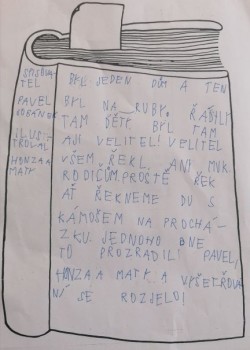 SPISOVA
TEL
PAVEL
ILUST
TROVAL
HONZA A
MATY
BYL JEDEN DŮM A TEN
BYL NA RUBY. ŘÁDILY
TAM DĚTI. BYL TAM
AJI VELITEL! VELITEL
VŠEM ŘEKL. ANI MUK.
RODIČŮM PROSTĚ ŘEK
AŤ ŘEKNEME DU S
KÁMOŠEM NA PROCHÁ-
ZKU. JEDNOHO DNE
TO PROZRADIL! PAVEL,
HONZA A MATY A VYŠETŘOVÁ
NÍ SE ROZJELO!